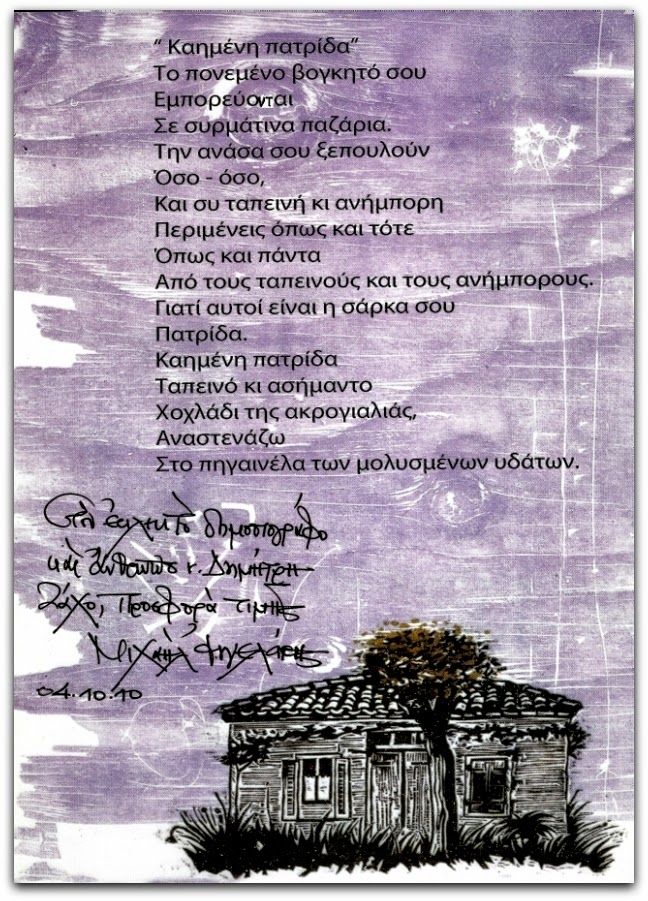 “ Καημένη πατρίδα”
Το πονεμένο βογκητό σου
Εμπορεύονται
Σε συρμάτινα παζάρια.
Την ανάσα σου ξεπουλούν
Όσο - όσο,
Και συ ταπεινή κι ανήμπορη
Περιμένεις όπως και τότε
Όπως και πάντα
Από τους ταπεινούς και τους ανήμπορους.
Γιατί αυτοί είναι η σάρκα σου
Πατρίδα.
Καημένη πατρίδα
Ταπεινό κι ασήμαντο
Χοχλάδι της ακρογιαλιάς,
Αναστενάζω
Στο πηγαινέλα των μολυσμένων υδάτων.
δημοσιογράφο
καὶ ἄνθρωπο κ. Δημήτρη
Ζάχο, Προσφορὰ τιμῆς
Μιχαήλ
04.10.10